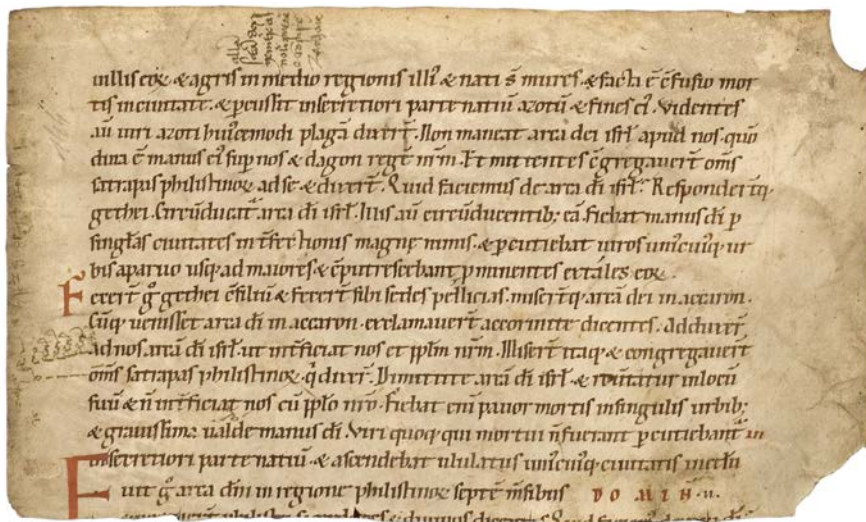 uillis eoꝝ & agris in medio regionis illi᷒ & nati s̄ mures & facta ē c̄fusio mor
tis in ciuitate. & percussit in secretiori parte natiū azotū & fines ei᷒. Videntes
aū uiri azoti hui᷒cemodi plagā dixer̄t. Non maneat arca dei isrl̄ apud nos. quō
dura ē manus ei᷒ sup̄ nos & dagon regē nr̄m. Et mittentes c̄gregauer̄t om̄s
satrapas philistinoꝝ ad se & dixer̄t. Quid faciemus de arca dī isrl̄. Responder̄tq;
gethei. Circūducat᷑ arca dī isrl̄. Illis aū circūducentib; eā. fiebat manus dī ꝑ
singl̄as ciuitates int̄fectionis magnę nimis. & percutiebat uiros uni᷒cui᷒q; ur
bis a paruo usq; ad maiorē & c̄putrescebant ꝓminentes extales eoꝝ.
Fecer̄t gͦ gethei c̄siliū & fecer̄t sibi sedes pellicias. miser̄tq; arcā dei in accaron.
Cūq; uenisset arca dī in accaron. exclamauer̄t accoronite dicentes. Adduxer̄t
ad nos arcā dī isrl̄. ut int̄ficiat nos et pplm̄ nr̄m. Miser̄t itaq; & congregauer̄t
om̄s satrapas philistinoꝝ. q̇ dixer̄t. Dimittite arcā dī isrl̄. & reu̇tatur in locū
suū & n̄ int̄ficiat nos cū pplo nr̄o. Fiebat eni᷒ pauor mortis in singulis urbib;
& grauissima ualde manus dī. Viri quoq; qui mortui n̄ fuerant percutiebant᷑
in secretiori parte natiū. & ascendebat ululatus uni᷒cui᷒q; ciuitatis in celū
Fuit gͦ arca dn̄i in regione philistinoꝝ septē m̄sibus